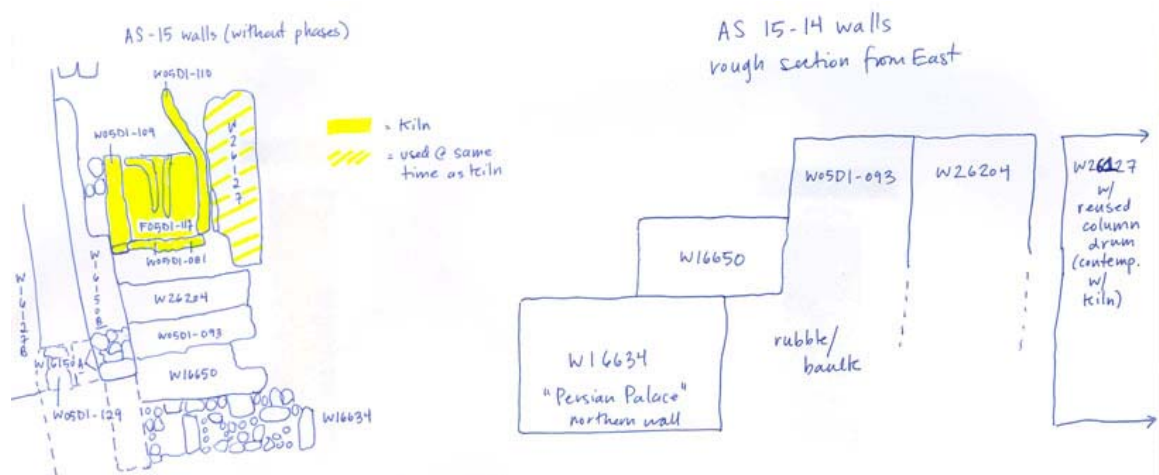 AS-15 walls (without phases)
W05D1-110
W05D1-109
W26127
= kiln
= used @ same
time as kiln
F05D1-117
W05D1-081
W16150B
W16127B
W26204
W05D1-093
W16150A
W16650
W05D1-129
W16634
AS 15-14 walls
rough section from East
W05D1-093
W26204
W26127
w/
reused
column
drum
(contemp.
w/
kiln)
W16650
rubble/
baulk
W16634
"Persian Palace"
northern wall